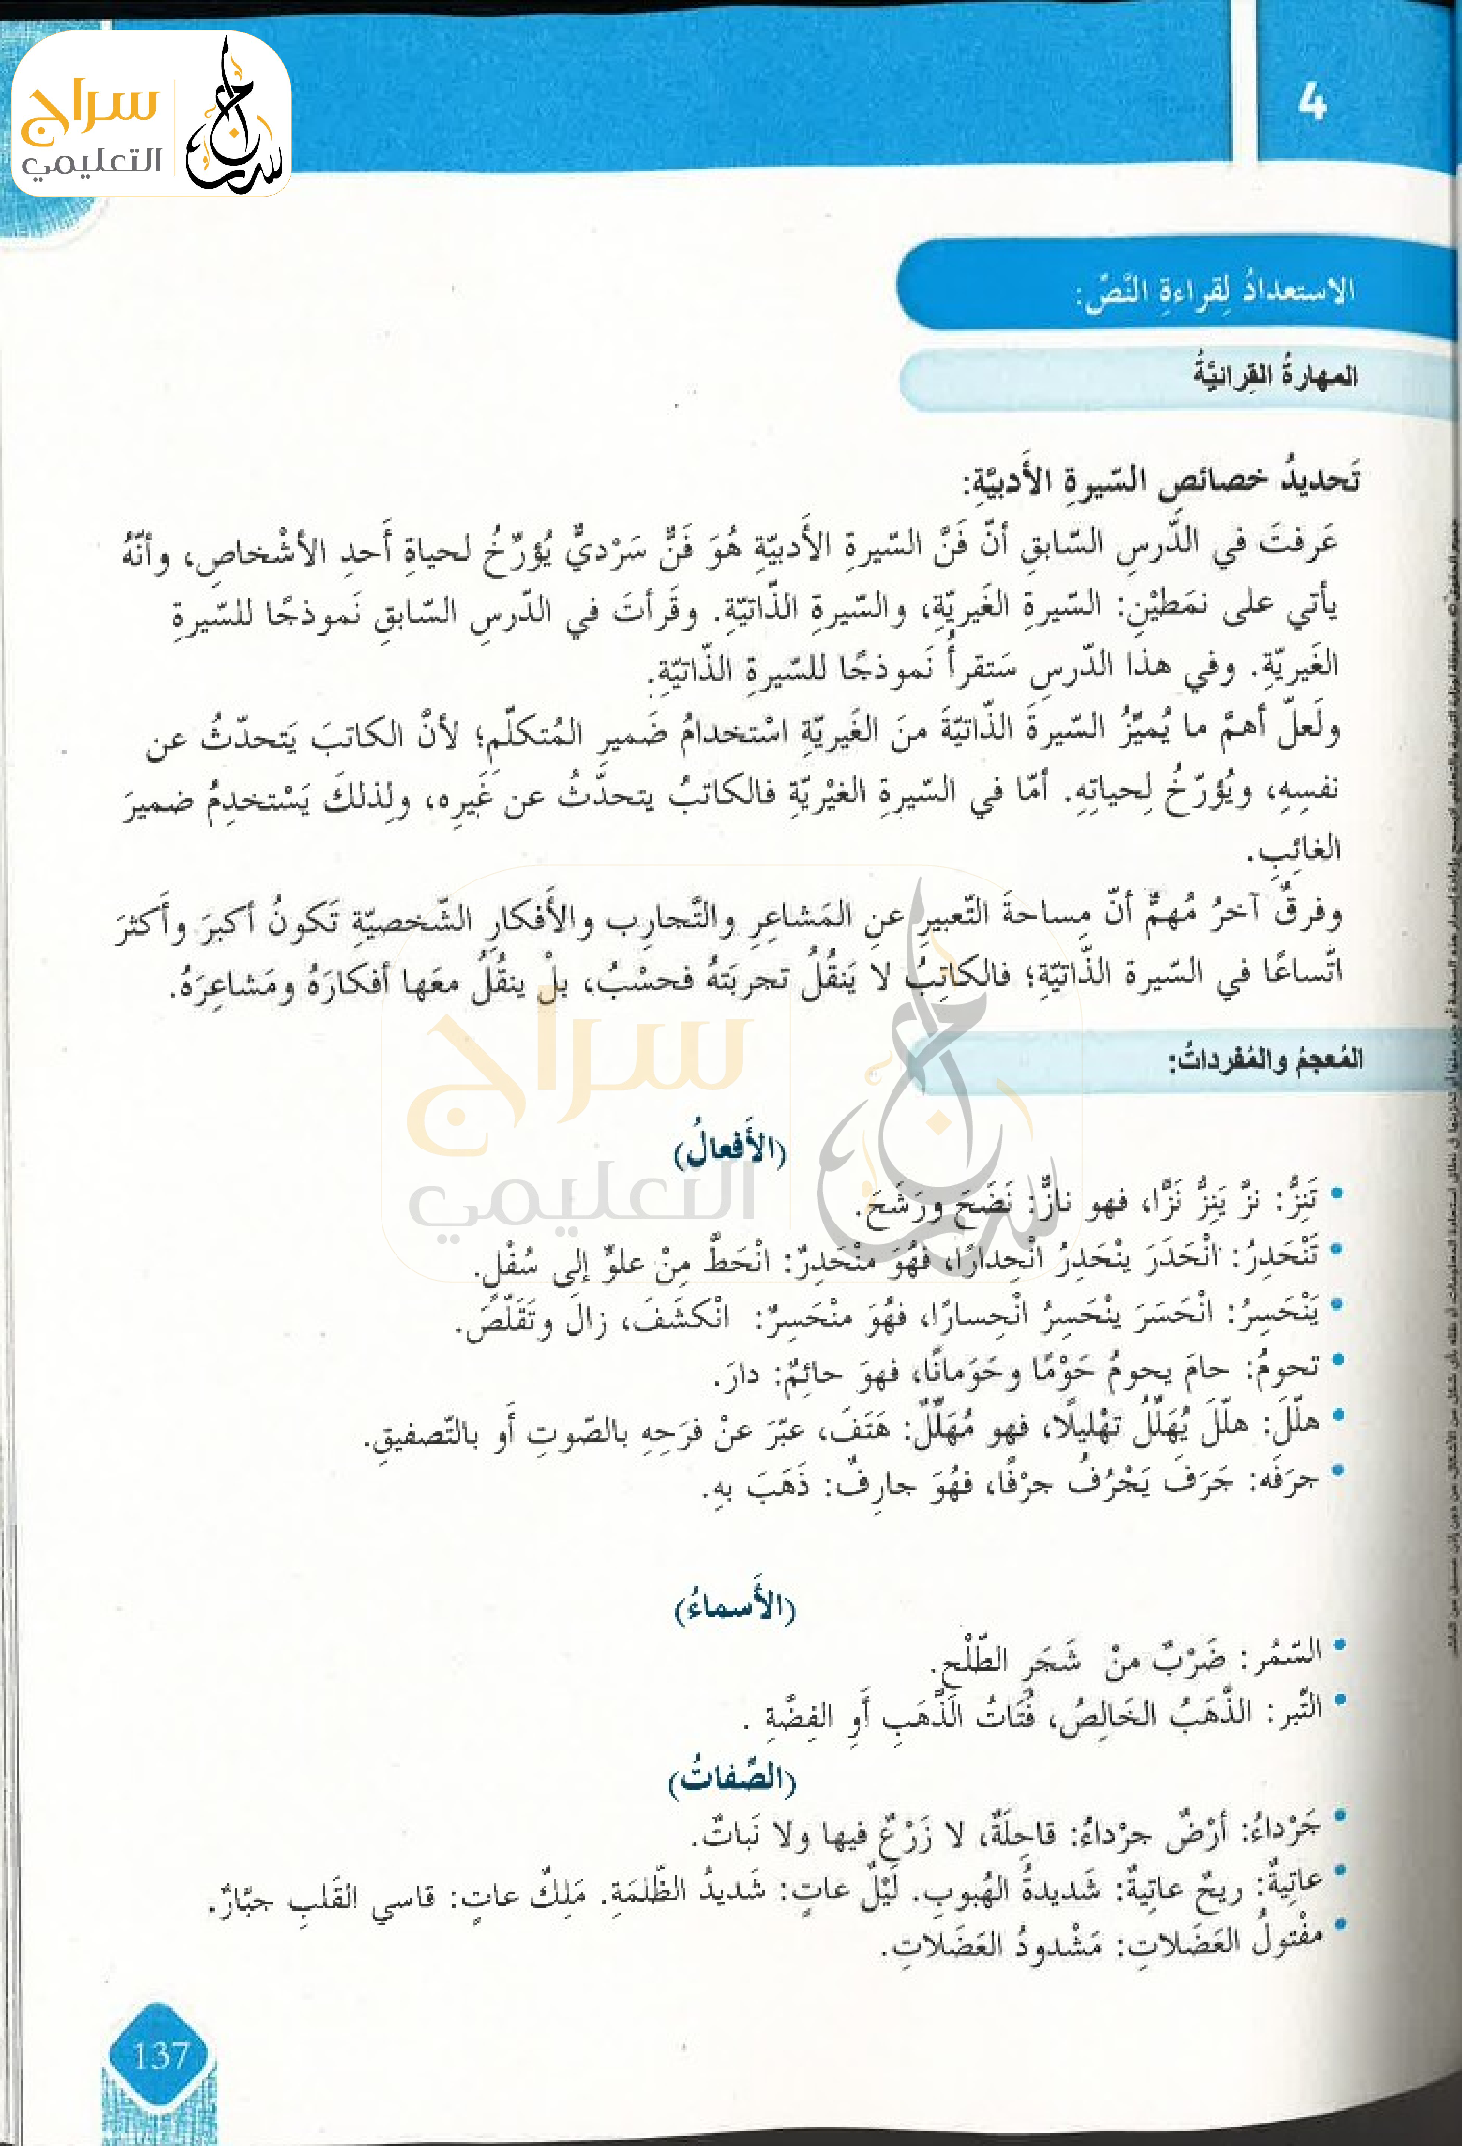 سراج
التعليمي
4
الاستعدادُ لِقراءةِ النَّصّ:
المهارةُ القِرائيَّةُ
تَحديدُ خصائصِ السّيرةِ الأَدبيَّةِ:
عَرفتَ في الدَّرسِ السّابقِ أنّ فَنَّ السّيرةِ الأَدبيّةِ هُوَ فَنٌّ سَرْديٌّ يُؤرِّخُ لحياةِ أَحدِ الأشْخاصِ، وأنّهُ
يأتي على نمَطيْنِ: السّيرةِ الغَيريّةِ، والسّيرةِ الذّاتيّةِ. وقَرأتَ في الدّرسِ السّابقِ نَموذجًا للسّيرةِ
الغَيريّةِ. وفي هذا الدّرسِ سَتقرأُ نَموذجًا للسّيرةِ الذّاتيّةِ.
ولَعلّ أهمَّ ما يُميِّزُ السّيرةَ الذّاتيّةَ منَ الغَيريّةِ اسْتخدامُ ضَميرِ المُتكلّمِ؛ لأنَّ الكاتبَ يَتحدّثُ عن
نفسِهِ، ويُؤرّخُ لِحياتِهِ. أمّا في السّيرةِ الغيْريّةِ فالكاتبُ يتحدَّثُ عن غَيرِه، ولِذلكَ يَسْتخدِمُ ضميرَ
الغائِبِ.
وفرقٌ آخرُ مُهمٌّ أنّ مِساحةَ التّعبيرِ عنِ المَشاعِرِ والتَّجارِب والأَفكارِ الشّخصيّةِ تَكونُ أكبرَ وأَكثرَ
اتَّساعًا في السّيرة الذّاتيّةِ؛ فالكاتِبُ لا يَنقُلُ تجربَتهُ فحسْبُ، بلْ ينقُلُ معَها أفكارَهُ ومَشاعِرَهُ.
المُعجمُ والمُفرداتُ:
(الأَفعالُ)
• تَنِزُّ: نزَّ يَنِزُّ نَزًّا، فهو نازٌّ: نَضَحَ ورَشَحَ.
• تَنْحَدِرُ: انْحَدَرَ ينْحَدِرُ انْحِدارًا، فَهُوَ منْحَدِرٌ: انْحَطَّ مِنْ علوٍّ إلى سُفْلٍ.
• يَنْحَسِرُ: انْحَسَرَ ينْحَسِرُ انْحِسارًا، فهُوَ منْحَسِرٌ: انْكشَفَ، زالَ وتَقَلَّصَ.
• تحومُ: حامَ يحومُ حَوْمًا وحَوَمانًا، فهوَ حائِمٌ: دارَ.
• هلّلَ: هلّلَ يُهَلِّلُ تهْليلًا، فهو مُهَلِّلٌ: هَتَفَ، عبّرَ عنْ فرَحِهِ بالصّوتِ أَو بالتّصفيقِ.
• جرَفَه: جَرَفَ يَجْرُفُ جرْفًا، فهُوَ جارِفٌ: ذَهَبَ بهِ.
(الأَسماءُ)
• السّمُر: ضَرْبٌ منْ شَجَرِ الطّلْحِ.
• التَّبر: الذَّهَبُ الخَالِصُ، فُتَاتُ الذَّهَبِ أَوِ الفِضَّةِ .
(الصِّفاتُ)
• جَرْداءُ: أرْضٌ جرْداءُ: قاحِلَةٌ، لا زَرْعٌ فيها ولا نَباتٌ.
• عاتِيةٌ: ريحٌ عاتِيةٌ: شَديدةُ الهُبوبِ. لَيْلٌ عاتٍ: شَديدُ الظّلمَةِ. مَلِكٌ عاتٍ: قاسي القَلبِ جبّارٌ.
• مفْتولُ العَضَلاتِ: مَشْدودُ العَضَلاتِ.
137
سراج
التعليمي